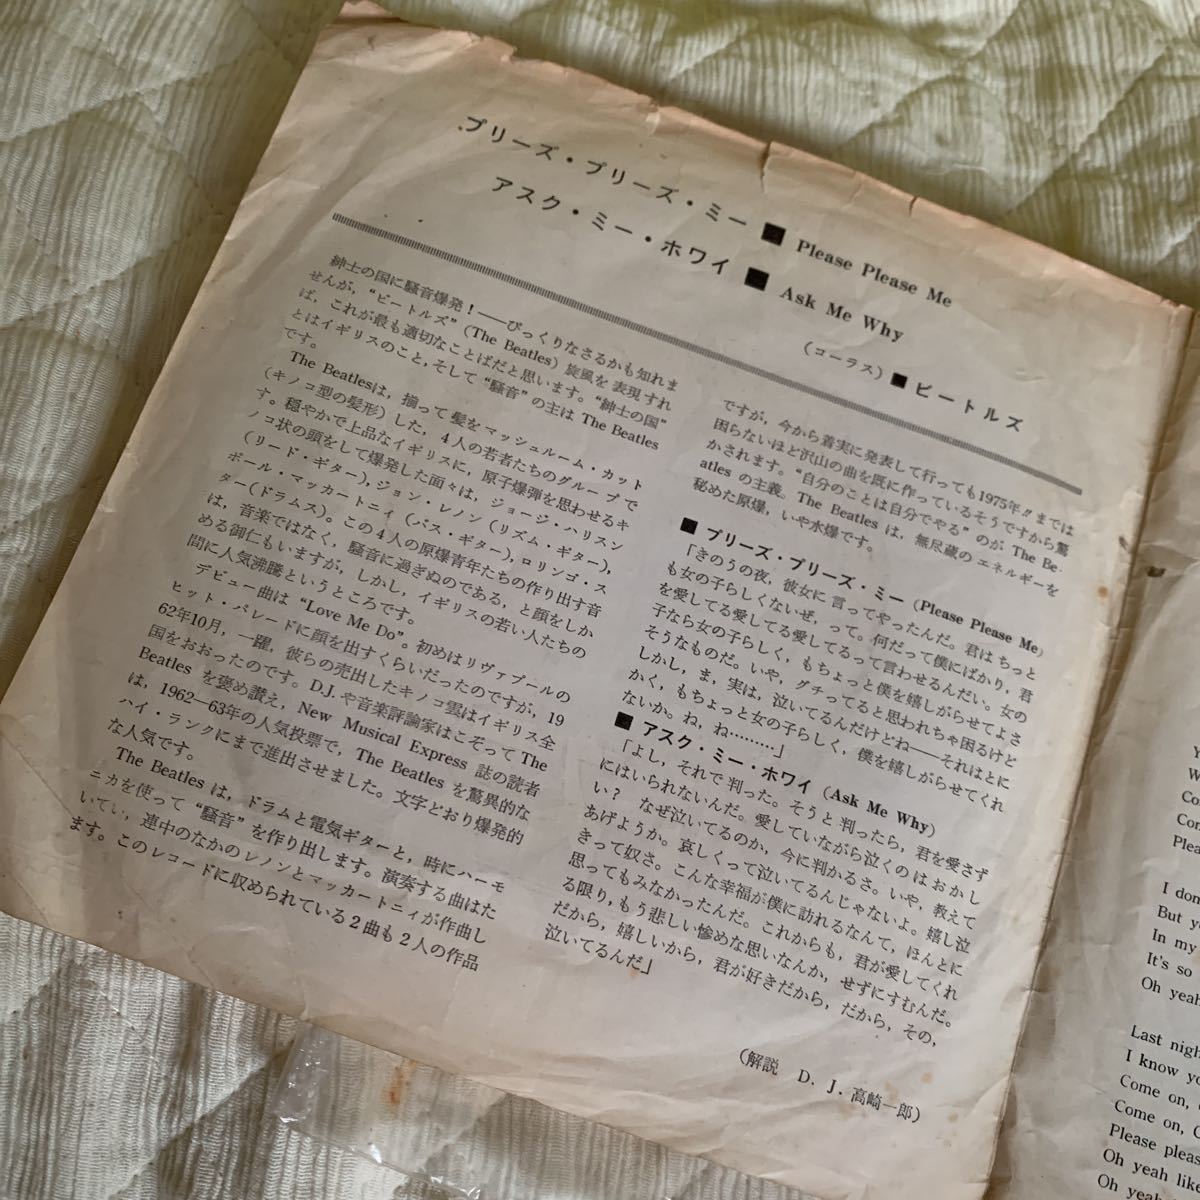 プリーズ・プリーズ・ミー ■ Please Please Me
アスク・ミー・ホワイ ■ Ask Me Why
(コーラス) ■ ビートルズ
紳士の国に騒音爆発！――びっくりなさるかも知れま
せんが，“ビートルズ”(The Beatles) 旋風を表現すれ
ば，これが最も適切なことばだと思います。“紳士の国”
とはイギリスのこと，そして“騒音”の主は The Beatles
です。
The Beatlesは，揃って髪をマッシュルーム・カット
(キノコ型の髪形) した，4人の若者たちのグループで
す。穏やかで上品なイギリスに，原子爆弾を思わせるキ
ノコ状の頭をして爆発した面々は，ジョージ・ハリスン
(リード・ギター)，ジョン・レノン (リズム・ギター)，
ポール・マッカートニィ (バス・ギター)，ロリンゴ・ス
ター(ドラムス)。この4人の原爆青年たちの作り出す音
は，音楽ではなく，騒音に過ぎぬのである，と顔をしか
める御仁もいますが，しかし，イギリスの若い人たちの
間に人気沸騰というところです。
デビュー曲は“Love Me Do”。初めはリヴァプールの
ヒット・パレードに顔を出すくらいだったのですが，19
62年10月，一躍，彼らの売出したキノコ雲はイギリス全
国をおおったのです。D.J.や音楽評論家はこぞって The
Beatles を褒め讃え，New Musical Express 誌の読者
は，1962―63年の人気投票で，The Beatles を驚異的な
ハイ・ランクにまで進出させました。文字どおり爆発的
な人気です。
The Beatles は，ドラムと電気ギターと，時にハーモ
ニカを使って“騒音”を作り出します。演奏する曲はた
いてい，連中のなかのレノンとマッカートニィが作曲し
ます。このレコードに収められている2曲も2人の作品
ですが，今から着実に発表して行っても1975年!!までは
困らないほど沢山の曲を既に作っているそうですから驚
かされます。“自分のことは自分でやる”のが The Be-
atles の主義。The Beatles は，無尽蔵のエネルギーを
秘めた原爆，いや水爆です。
■ プリーズ・プリーズ・ミー (Please Please Me)
「きのうの夜，彼女に言ってやったんだ。君はちっと
も女の子らしくないぜ，って。何だって僕にばかり，君
を愛してる愛してる愛してるって言わせるんだい。女の
子なら女の子らしく，もちょっと僕を嬉しがらせてよさ
そうなものだ。いや，グチってると思われちゃ困るけど
しかし，ま，実は，泣いてるんだけどね――それはとに
かく，もちょっと女の子らしく，僕を嬉しがらせてくれ
ないか。ね，ね………」
■ アスク・ミー・ホワイ (Ask Me Why)
「よし，それで判った。そうと判ったら，君を愛さず
にはいられないんだ。愛していながら泣くのはおかし
い？ なぜ泣いてるのか，今に判かるさ。いや，教えて
あげようか。哀しくって泣いてるんじゃないよ。嬉し泣
きって奴さ。こんな幸福が僕に訪れるなんて，ほんとに
思ってもみなかったんだ。これからも，君が愛してくれ
る限り，もう悲しい惨めな思いなんか，せずにすむんだ。
だから，嬉しいから，君が好きだから，だから，その，
泣いてるんだ」
(解説 D. J. 高崎一郎)
I don
In my
It's so
Oh yeah
Last nigh
I know yo
Come on,
Come on, C
Please pleas
Oh yeah like
Oh yeah